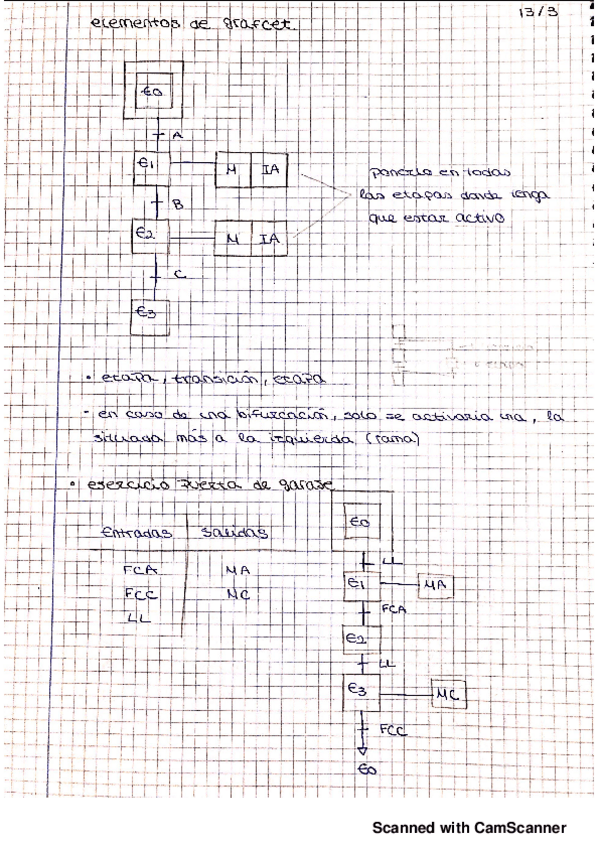 13/3
elementos de grafcet.
E0
A
E1 M IA
B
E2 M IA
C
E3
ponerlo en todas
las etapas donde tenga
que estar activo
• etapa, transición, etapa
- en caso de una bifurcación, solo se activaria una, la
situada más a la izquierda (rama)
• ejercicio puerta de garaje
Entradas Salidas
FCA MA
FCC MC
LL
E0
LL
E1 MA
FCA
E2
LL
E3 MC
FCC
E0
Scanned with CamScanner